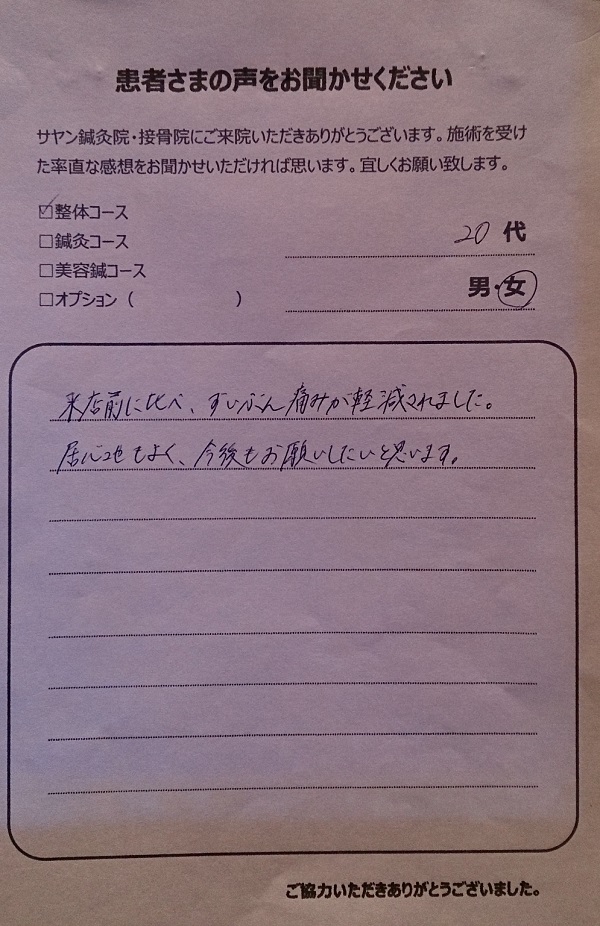 患者さまの声をお聞かせください
サヤン鍼灸院・接骨院にご来院いただきありがとうございます。施術を受け
た率直な感想をお聞かせいただければ思います。宜しくお願い致します。
☑整体コース
□鍼灸コース
20 代
□美容鍼コース
男・女
□オプション（　　　　　　）
来店前に比べ、ずいぶん痛みが軽減されました。
居心地もよく、今後もお願いしたいと思います。
ご協力いただきありがとうございました。